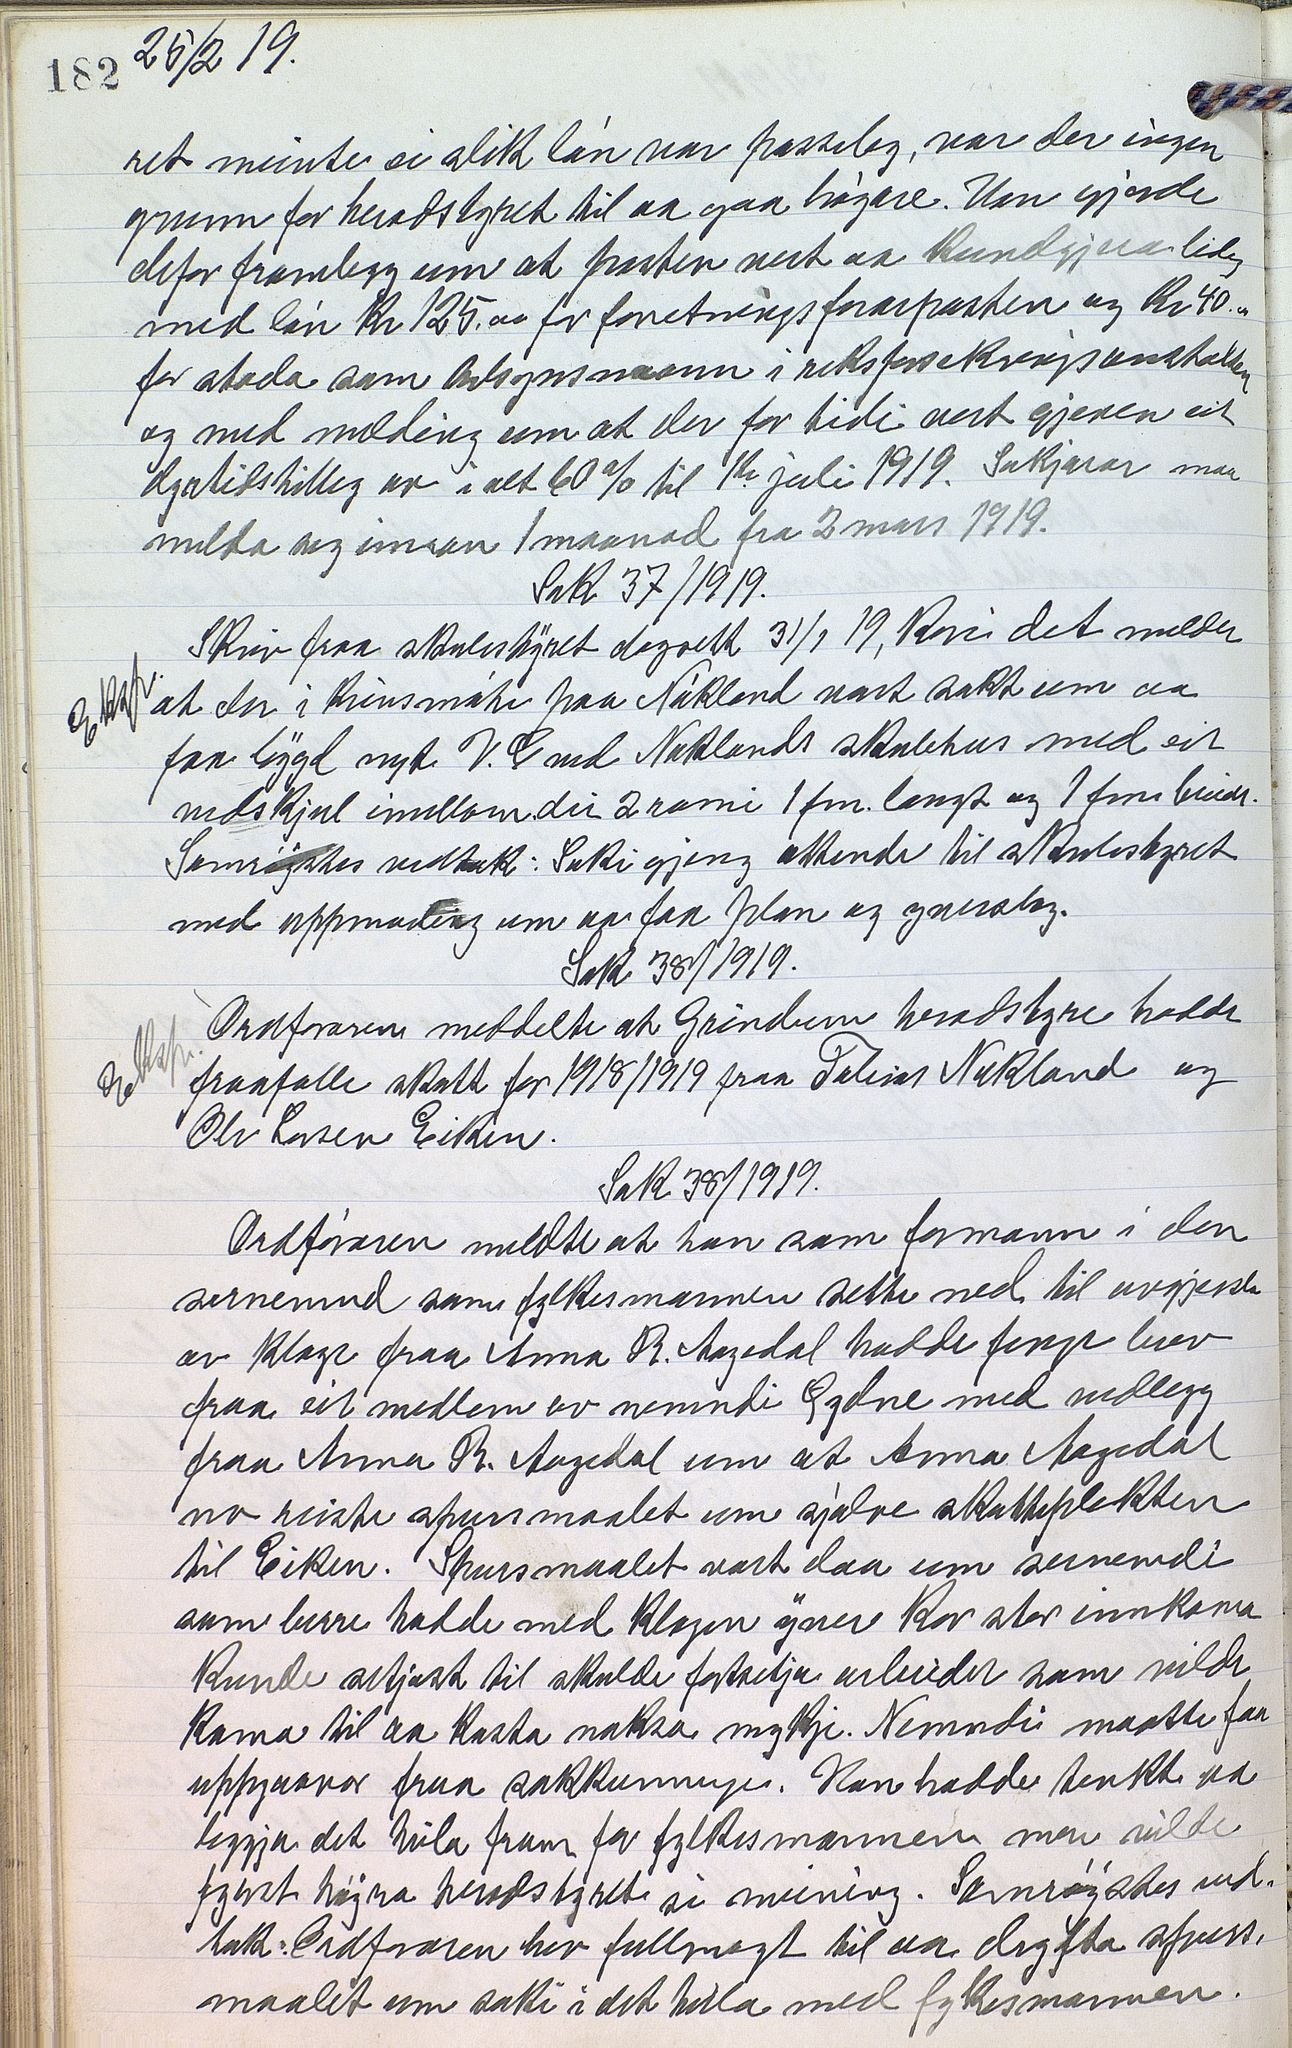 182 25/2 19.
ret meinte ei slik lön var passeleg, var der ingen
grunn for heradstyret til aa gaa högare. Han gjorde
difor framlegg um at posten vert aa kundgjera ledig
med lön Kr 125.00 for forretningsførarposten og Kr 40.00
for stoda som tilsynsmann i riksforsekringsanstalten
og med melding um at der for tidi vert gjeven eit
dyrtidstillegg av i alt 60 % til 1ste juli 1919. Sökjarar maa
melda seg innan 1 maanad fra 2 mars 1919.
Sak 37/1919.
Skriv fraa skulestyret dagsett 31/1 19, kori det melder
Ekspr.
at der i krinsmöte paa Nökland vart sökt um aa
faa bygd nytt V.C ved Nöklands skulehus med eit
vedskjul imellom dei 2 romi 1 fm. langt og 1 fm breidt.
Samröystes vedtak: Saki gjeng attende til skulestyret
med uppmoding um aa faa plan og yverslag.
Sak 38/1919.
Ekspr.
Ordföraren meddelte at Grindum heradstyre hadde
fraafalle skatt for 1918/1919 fraa Tobias Nökland og
Ole Larsen Eiken.
Sak 38/1919.
Ordföraren meldte at han som formann i den
sernemnd som fylkesmannen sette ned til avgjerdla
av klage fraa Anna R. Aagedal hadde fenge brev
fraa eit medlem av nemndi Eydne med vedlegg
fraa Anna R. Aagedal um at Anna Aagedal
no reiste spursmaalet um sjølve skatteplikten
til Eiken. Spursmaalet vart daa um sernemdi
som berre hadde med klagen yver kor stor innkoma
kunde setjast til skulde fortsetja arbeidet som vilde
koma til aa kosta nokso mykje. Nemndi maatte faa
uppgaavor fraa sakkunnige. Han hadde tenkt aa
leggja det heila fram for fylkesmannen men vilde
fyrst höyra heradstyret si meining. Samröystes ved-
tak: Ordföraren hev fullmagt til aa dryfta spurs-
maalet um saki i det heila med fylkesmannen.